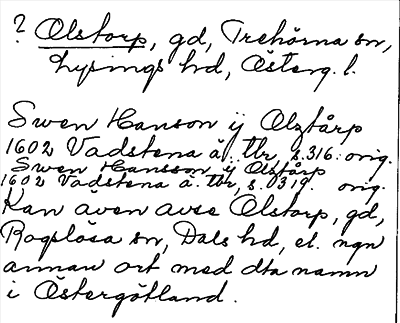 ? Olstorp, gd, Trehörna sn,
Lysings hd, Österg. l.
Swen Hanson ÿ Olztårp
1602 Vadstena ä. tlr, s. 316. orig.
Swen Hansson ÿ Olstårp
1602 Vadstena ä. tlr, s. 319. orig.
Kan även avse Olstorp, gd,
Rogslösa sn, Dals hd, el. ngn
annan ort med dta namn
i Östergötland.